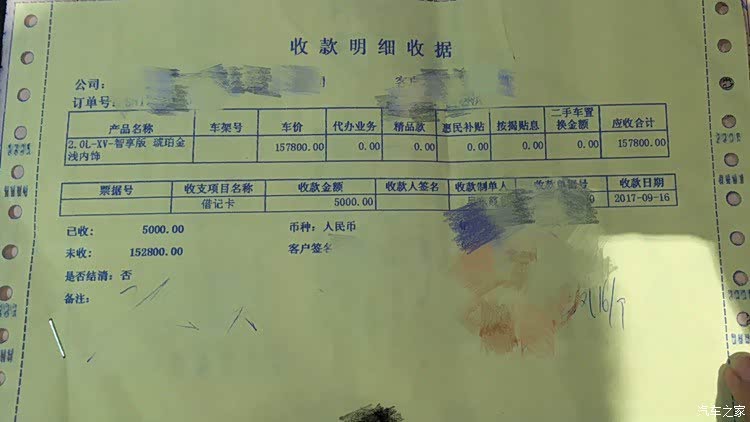 收款明细收据
公司：
订单号：
产品名称 车架号 车价 代办业务 精品款 惠民补贴 按揭贴息 二手车置换金额 应收合计
2.0L-XV-智享版 琥珀金 157800.00 0.00 0.00 0.00 0.00 0.00 157800.00
浅内饰
票据号 收支项目名称 收款金额 收款人签名 收款制单人 收款单据号 收款日期
借记卡 5000.00 2017-09-16
已收： 5000.00 币种：人民币
未收： 152800.00 客户签名
是否结清：否
备注：
汽车之家